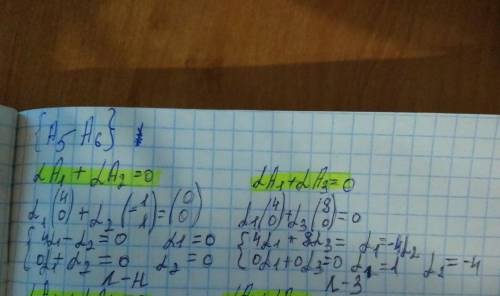 {A₅ – A₆}
αA₁ + αA₂ = 0
α₁ (4 0) + α₂ (-1 1) = (0 0)
{ 4α₁ - α₂ = 0 α₁ = 0
{ 0α₁ + α₂ = 0 α₂ = 0
Л-Н
αA₁ + αA₃ = 0
α₁ (4 0) + α₃ (8 0) = 0
{ 4α₁ + 8α₃ = α₁ = -4α₂
{ 0α₁ + 0α₃ = 0 α₁ = 1 α₂ = -4
Л-З